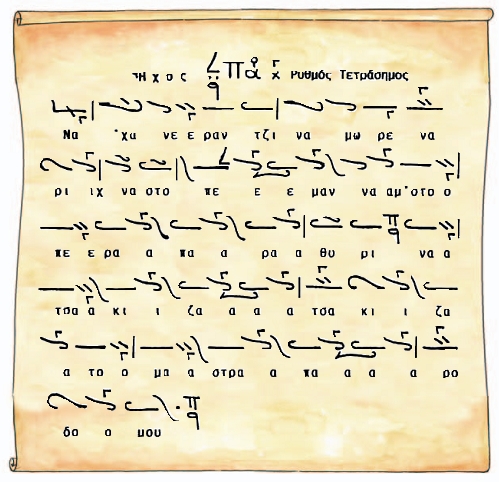 Ἦχος Πα Ρυθμός Τετράσημος
Να 'χα νε ε ραν τζι να μω ρε να
ρι ιχ να στο πε ε ε μαν να αμ' στο ο
πε ε ρα α πα α ρα α θυ ρι να α
τσα α κι ι ζα α α α τσα κι ι ζα
α το ο μα α στρα α πα α α α ρο
δα α μου